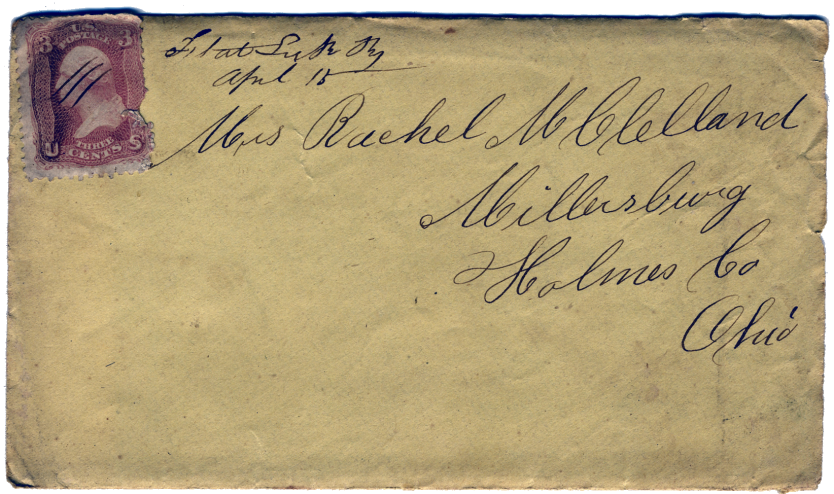 U.S.
3 POSTAGE 3
THREE
U CENTS S
Flat Lick Ky
April 15
Mrs Rachel McClelland
Millersburg
Holmes Co
Ohio